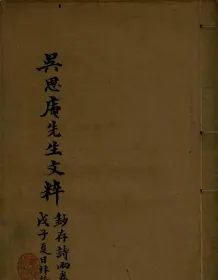 吳思庵先生文粹
鈔存詩兩卷
戊子夏日